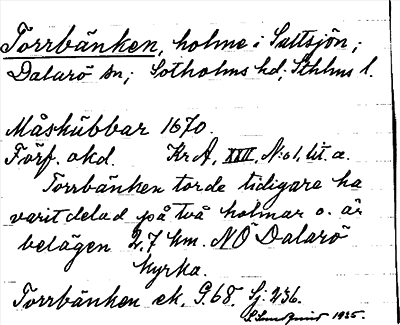 Torrbänken, holme i Saltsjön;
Dalarö sn; Sotholms hd; Sthlms l.
Måskübbar 1670.
Förf. okd. KrA, XIII, N:o 1, lit. a.
Torrbänken torde tidigare ha
varit delad på två holmar o. är
belägen 2,7 km. NÖ Dalarö
kyrka.
Torrbänken ek. G.68. Sj. 236.
1925.